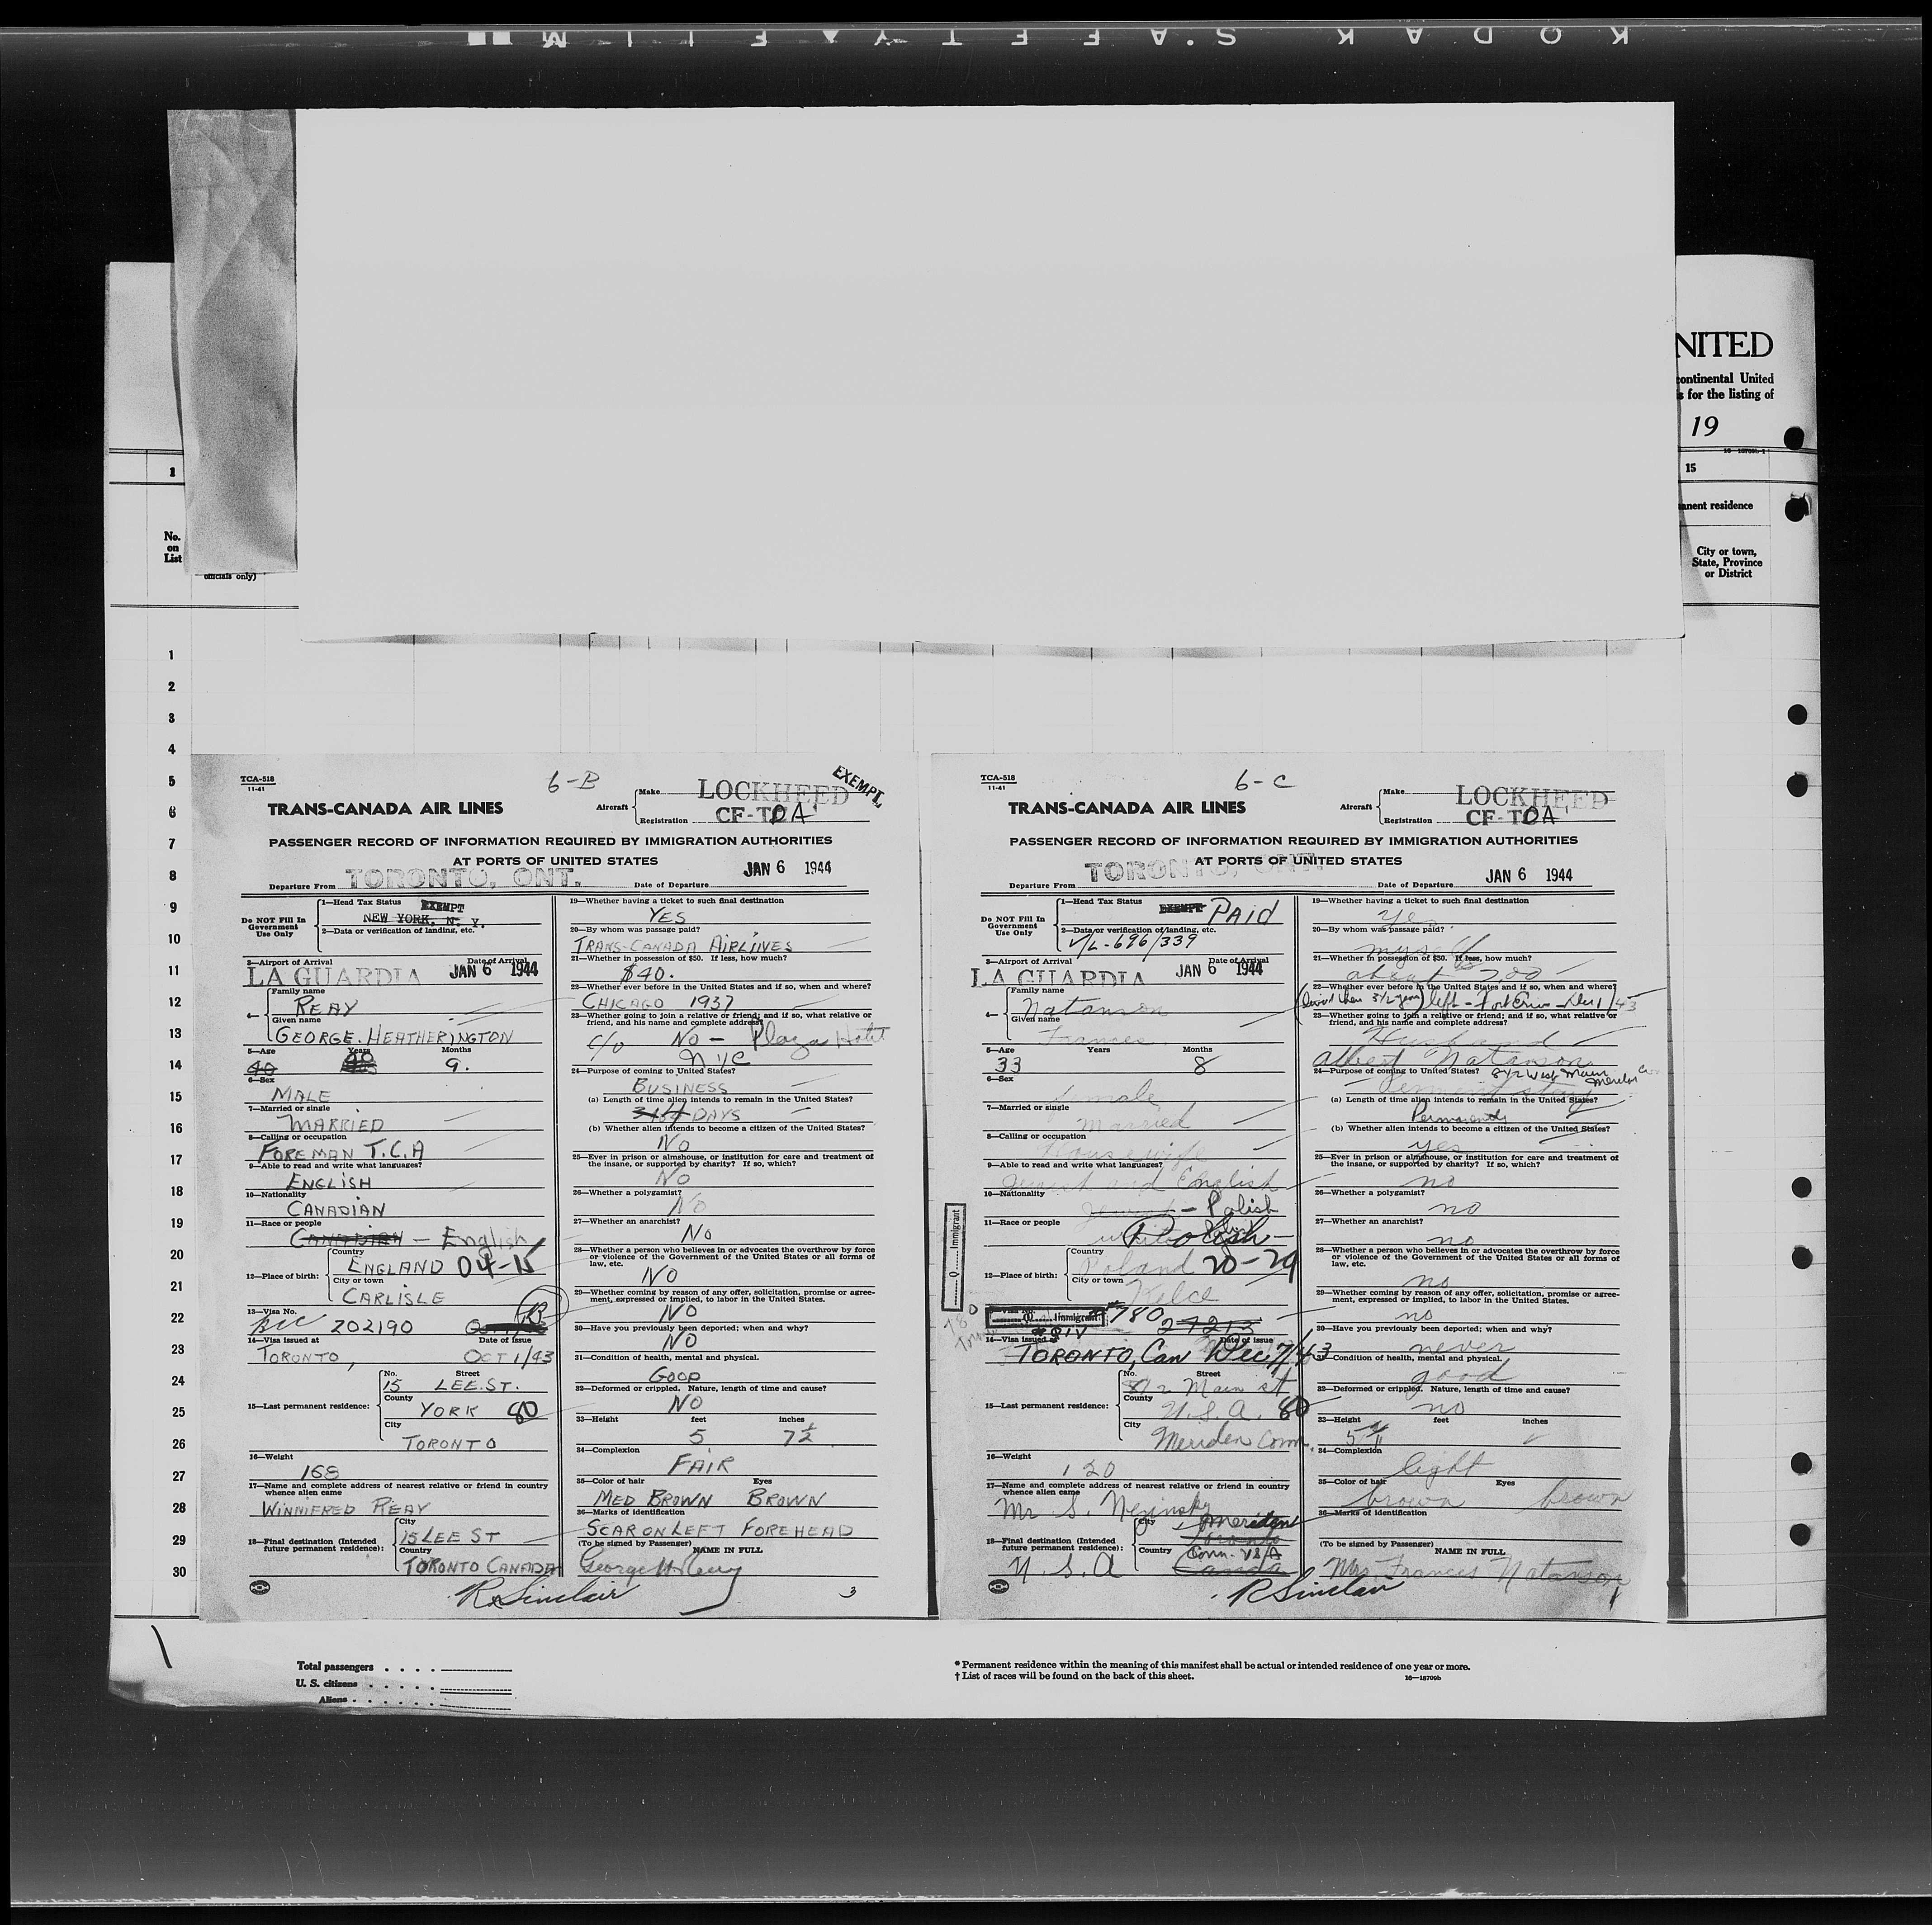 KODAK SAFETY FILM
NITED
continental United
s for the listing of
19
1
15
No.
on
List
anent residence
City or town,
State, Province
or District
officials only)
1
2
3
4
5
6
7
8
9
10
11
12
13
14
15
16
17
18
19
20
21
22
23
24
25
26
27
28
29
30
TCA-518
11-41
6-B
EXEMPT.
TRANS-CANADA AIR LINES
Aircraft
Make LOCKHEED
Registration CF-TCA
PASSENGER RECORD OF INFORMATION REQUIRED BY IMMIGRATION AUTHORITIES
AT PORTS OF UNITED STATES
Departure From TORONTO, ONT.
Date of Departure JAN 6 1944
Do NOT Fill In
Government
Use Only
1—Head Tax Status EXEMPT
NEW YORK, N. Y.
2—Data or verification of landing, etc.
3—Airport of Arrival LA GUARDIA
Date of Arrival JAN 6 1944
4—
Family name
REAY
Given name
GEORGE. HEATHERINGTON
5—Age Years Months
40 9.
6—Sex
MALE
7—Married or single
MARRIED
8—Calling or occupation
FOREMAN T.C.A
9—Able to read and write what languages?
ENGLISH
10—Nationality
CANADIAN
11—Race or people
CANADIAN — English
12—Place of birth:
Country
ENGLAND 04-15
City or town
CARLISLE
13—Visa No.
202190
14—Visa issued at Date of issue
TORONTO, OCT 1/43
15—Last permanent residence:
No. Street
15 LEE. ST.
County
YORK 80
City
TORONTO
16—Weight
168
17—Name and complete address of nearest relative or friend in country
whence alien came
WINNIFRED REAY
18—Final destination (Intended
future permanent residence):
City
15 LEE ST
Country
TORONTO CANADA
R. Sinclair
19—Whether having a ticket to such final destination
YES
20—By whom was passage paid?
TRANS-CANADA AIRLINES
21—Whether in possession of $50. If less, how much?
$40.
22—Whether ever before in the United States and if so, when and where?
CHICAGO 1937
23—Whether going to join a relative or friend; and if so, what relative or
friend, and his name and complete address?
c/o NO — Plaza Hotel
NYC
24—Purpose of coming to United States?
BUSINESS
(a) Length of time alien intends to remain in the United States?
DAYS
(b) Whether alien intends to become a citizen of the United States?
NO
25—Ever in prison or almshouse, or institution for care and treatment of
the insane, or supported by charity? If so, which?
NO
26—Whether a polygamist?
NO
27—Whether an anarchist?
NO
28—Whether a person who believes in or advocates the overthrow by force
or violence of the Government of the United States or all forms of
law, etc.
NO
29—Whether coming by reason of any offer, solicitation, promise or agree-
ment, expressed or implied, to labor in the United States.
NO
30—Have you previously been deported; when and why?
NO
31—Condition of health, mental and physical.
GOOD
32—Deformed or crippled. Nature, length of time and cause?
NO
33—Height feet inches
5 7½
34—Complexion
FAIR
35—Color of hair Eyes
MED BROWN BROWN
36—Marks of identification
SCAR ON LEFT FOREHEAD
(To be signed by Passenger) NAME IN FULL
George H Reay
3
TCA-518
11-41
6-C
TRANS-CANADA AIR LINES
Aircraft
Make LOCKHEED
Registration CF-TCA
PASSENGER RECORD OF INFORMATION REQUIRED BY IMMIGRATION AUTHORITIES
AT PORTS OF UNITED STATES
Departure From TORONTO, ONT.
Date of Departure JAN 6 1944
Do NOT Fill In
Government
Use Only
1—Head Tax Status EXEMPT PAID
2—Data or verification of landing, etc.
V/L-696/339
3—Airport of Arrival LA GUARDIA
Date of Arrival JAN 6 1944
4—
Family name
Natanson
Given name
Frances
5—Age Years Months
33 8
6—Sex
female
7—Married or single
Married
8—Calling or occupation
Housewife
9—Able to read and write what languages?
Jewish and English
10—Nationality
Jewish — Polish
11—Race or people
white Polish —
12—Place of birth:
Country
Poland 20-29
City or town
Kelce
Q Immigrant
13—Visa No.
Q Immigrant 780
27213
14—Visa issued at Date of issue
TORONTO, Can Dec 7/43
15—Last permanent residence:
No. Street
812 Main st
County
U.S.A. 80
City
Meriden Conn.
16—Weight
120
17—Name and complete address of nearest relative or friend in country
whence alien came
Mr S.
18—Final destination (Intended
future permanent residence):
U.S.A
City
Meriden
Toronto
Country
Conn. USA
Canada
R Sinclair
19—Whether having a ticket to such final destination
Yes
20—By whom was passage paid?
myself
21—Whether in possession of $50. If less, how much?
about 200
22—Whether ever before in the United States and if so, when and where?
(lived there 3½ years) left - Fort Erie - Dec 1/43
23—Whether going to join a relative or friend; and if so, what relative or
friend, and his name and complete address?
Husband
Albert Natanson
812 West Main
24—Purpose of coming to United States?
Meriden
(a) Length of time alien intends to remain in the United States?
Permanently
(b) Whether alien intends to become a citizen of the United States?
yes
25—Ever in prison or almshouse, or institution for care and treatment of
the insane, or supported by charity? If so, which?
no
26—Whether a polygamist?
no
27—Whether an anarchist?
no
28—Whether a person who believes in or advocates the overthrow by force
or violence of the Government of the United States or all forms of
law, etc.
no
29—Whether coming by reason of any offer, solicitation, promise or agree-
ment, expressed or implied, to labor in the United States.
no
30—Have you previously been deported; when and why?
never
31—Condition of health, mental and physical.
good
32—Deformed or crippled. Nature, length of time and cause?
no
33—Height feet inches
5
34—Complexion
light
35—Color of hair Eyes
brown brown
36—Marks of identification
(To be signed by Passenger) NAME IN FULL
Mrs. Frances Natanson
Total passengers . . . .
U. S. citizens . . . . .
Aliens . . . . . .
* Permanent residence within the meaning of this manifest shall be actual or intended residence of one year or more.
† List of races will be found on the back of this sheet.
16—18709b